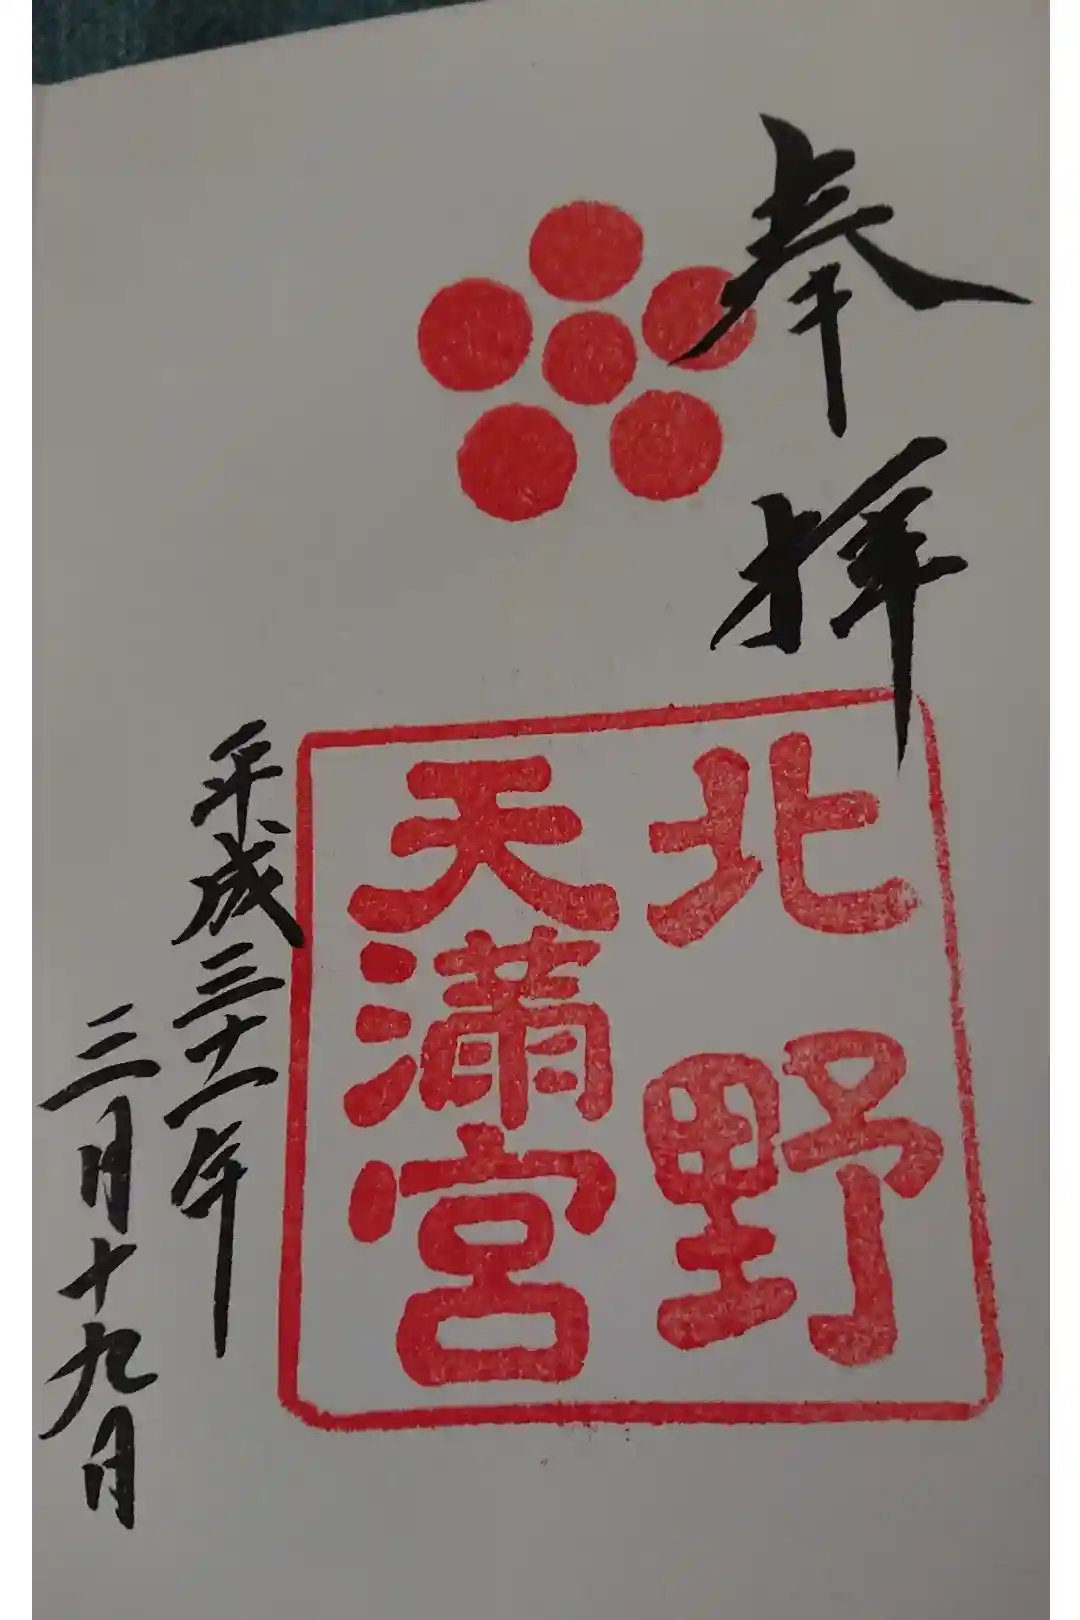 奉拝
北野
天満宮
平成三十一年
三月十九日